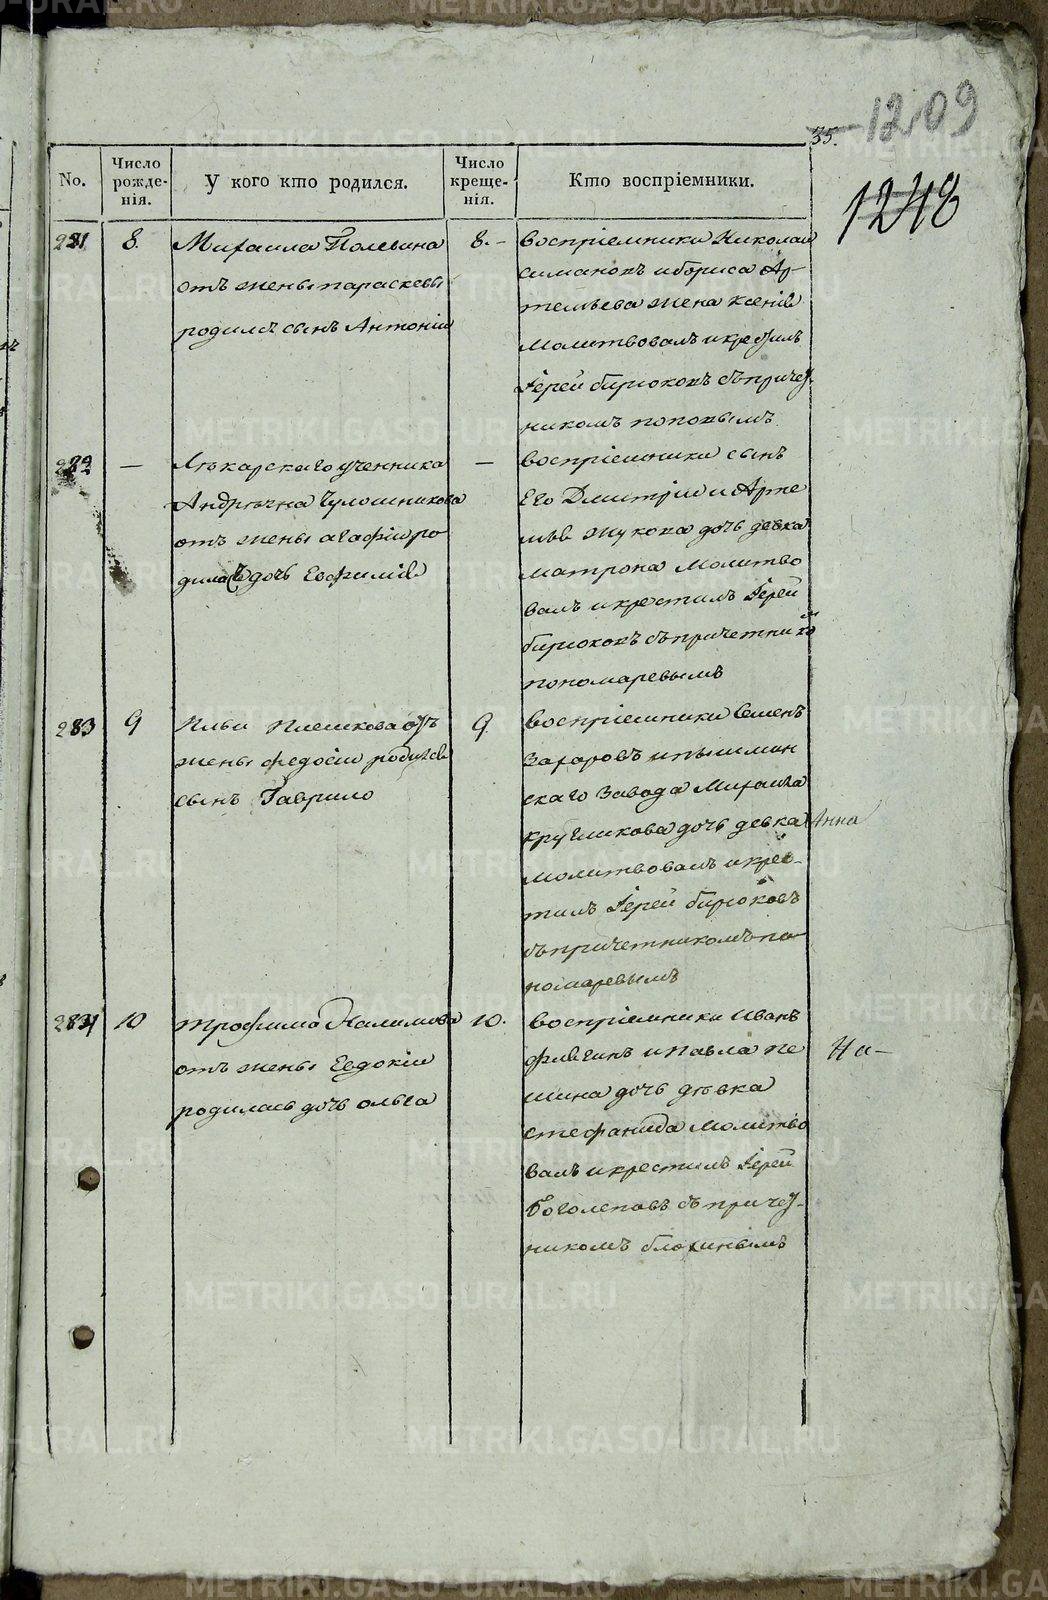 12,09
35.
1248
No.
Число рожде-нія.
У кого кто родился.
Число креще-нія.
Кто воспріемники.
281
8.
Михаила Полевина
отъ жены параскевы
родилсѣ сынъ Антоній
8.-
воспріемники Николай
симановъ и бориса Ар-
темьева жена ксенія
молитвовалъ и крестилъ
Іерей бирюковъ съ причет-
никомъ поповымъ
282
—
Лѣкарскаго ученника
отъ жены агафіи ро-
дилась дочь Евфимія
—
воспріемники сынъ
Его Дмитрій и Арте
мья жукова дочь девка
матрона молитво
валъ и крестилъ Іерей
бирюковъ съ причетнико
пономаревымъ
283
9
Ильи Плешкова отъ
жены федосіи родился
сынъ Гаврило
9
воспріемники Семенъ
Захаровъ и пышмин
скаго завода Михаила
кругликова дочь девка Анна
молитвовалъ и крес-
тилъ Іерей бирюковъ
съ причетникомъ по-
номаревымъ
284
10
трофима Налимова
отъ жены Евдокіи
родилась дочь ольга
10.
воспріемники Иванъ
и Павла пе
шина дочь девка
стефанида молитво
валъ и крестилъ Іерей
Боголеповъ съ причет-
никомъ блохинымъ
На-
METRIKI.GASO-URAL.RU